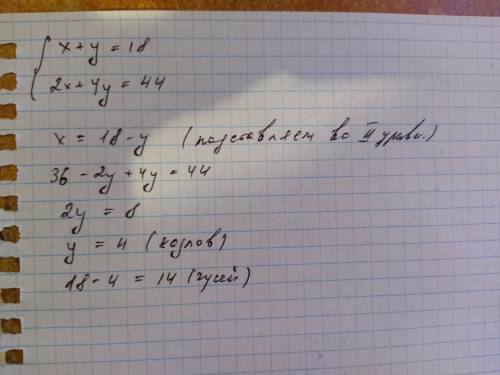 x + y = 18
2x + 4y = 44
x = 18 - y (подставляем во II уравн.)
36 - 2y + 4y = 44
2y = 8
y = 4 (козлов)
18 - 4 = 14 (гусей)